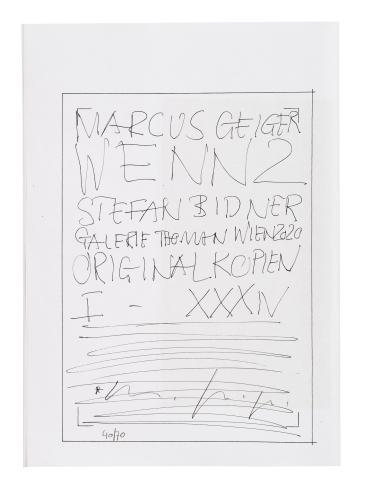 MARCUS GEIGER
WENN2
STEFAN BIDNER
GALERIE THOMAN WIEN 2020
ORIGINALKOPIEN
I - XXXIV
40/70